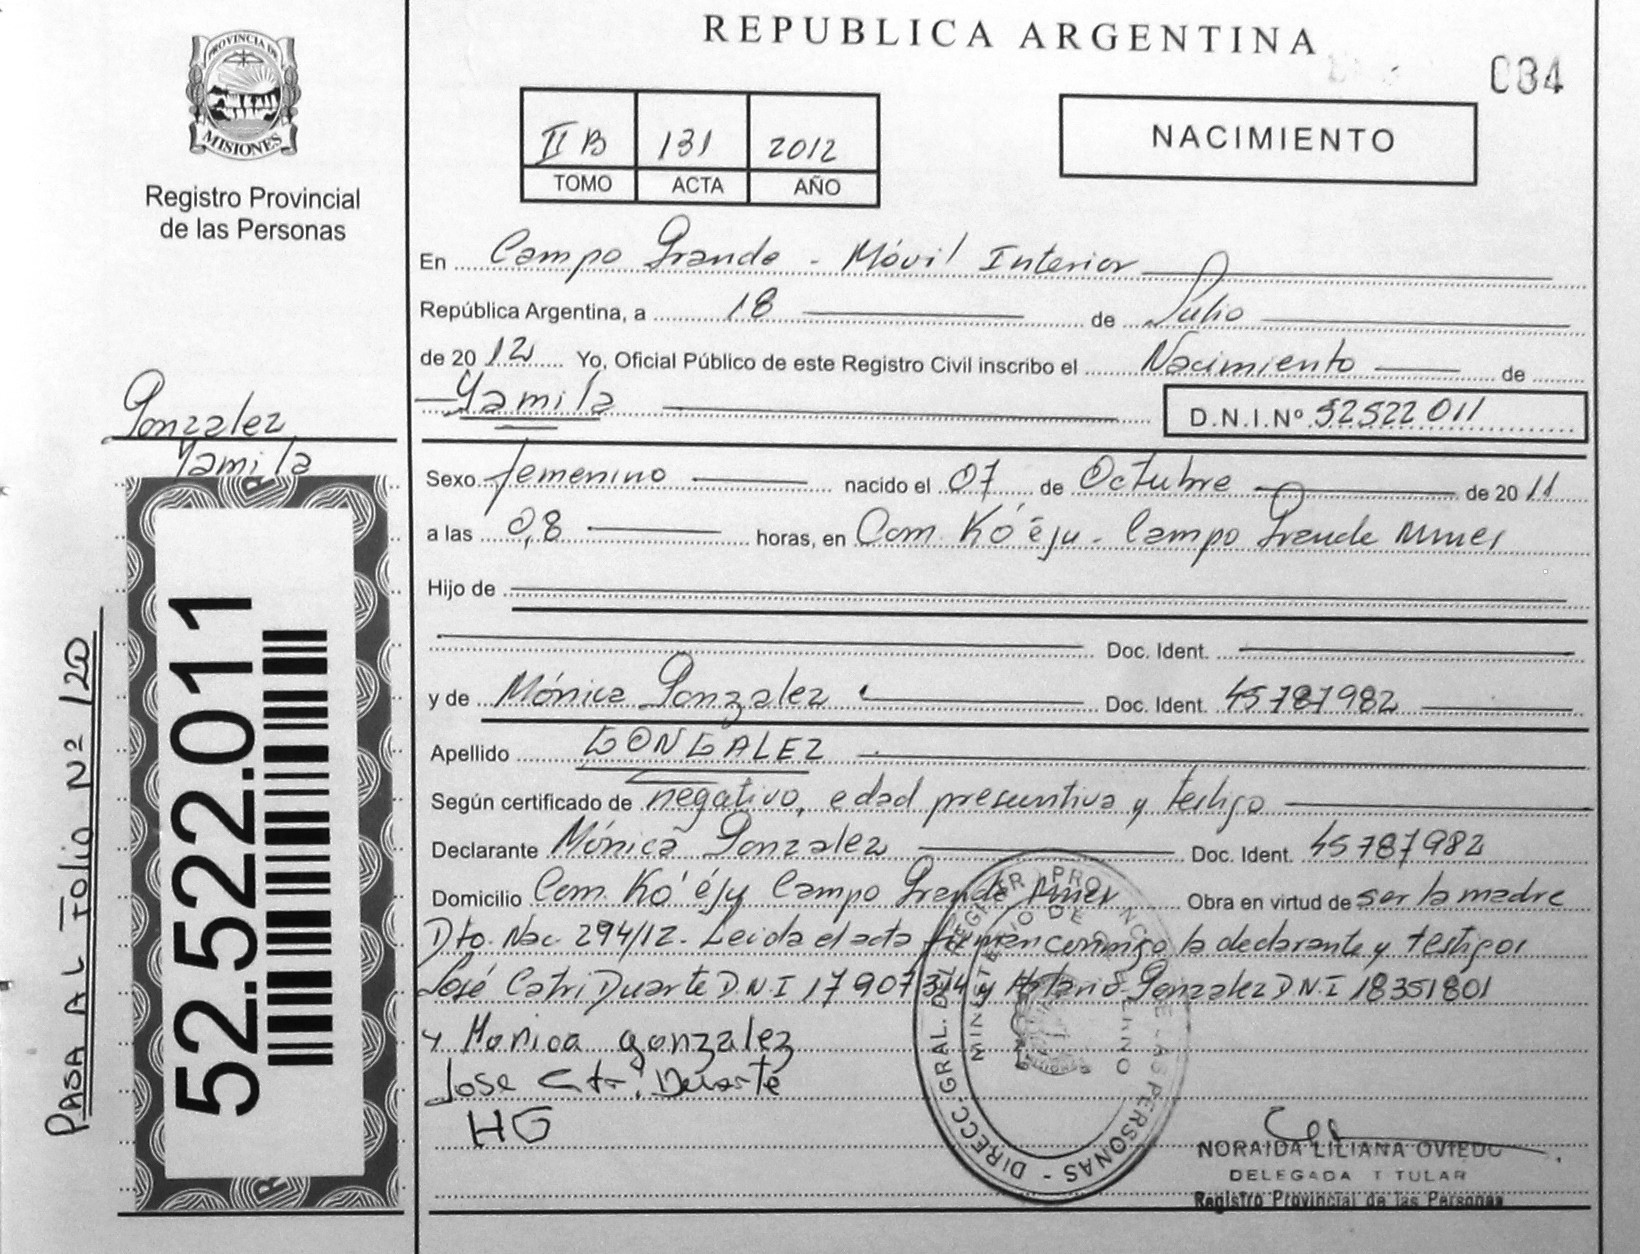 REPUBLICA ARGENTINA
034
PROVINCIA DE
MISIONES
Registro Provincial
de las Personas
II B 131 2012
TOMO ACTA AÑO
NACIMIENTO
En Campo Grande - Móvil Interior
República Argentina, a 18 de Julio
de 2012 Yo, Oficial Público de este Registro Civil inscribo el Nacimiento de
Yamila
D.N.I.Nº 52522011
Gonzalez
Yamila
Sexo femenino nacido el 07 de Octubre de 2011
a las 0,8 horas, en Com. Ko'éju - Campo Grande Mnes
Hijo de
Doc. Ident.
y de Mónica Gonzalez Doc. Ident. 45787982
Apellido GONZALEZ
Según certificado de negativo, edad presuntiva y testigo
Declarante Mónica Gonzalez Doc. Ident. 45787982
Domicilio Com. Ko'éju Campo Grande Mnes Obra en virtud de ser la madre
Dto. Nac. 294/12. Leida el acta firman conmigo la declarante y testigos
José Catri Duarte D.N.I 17907314 y Gonzalez D.N.I 18351801
y Monica gonzalez
Jose Duarte
HG
52.522.011
PASA AL FOLIO Nº 120
DIRECC. GRAL. DEL REGISTRO PROVINCIAL DE LAS PERSONAS
MINISTERIO DE GOBIERNO
NORAIDA LILIANA OVIEDO
DELEGADA TITULAR
Registro Provincial de las Personas